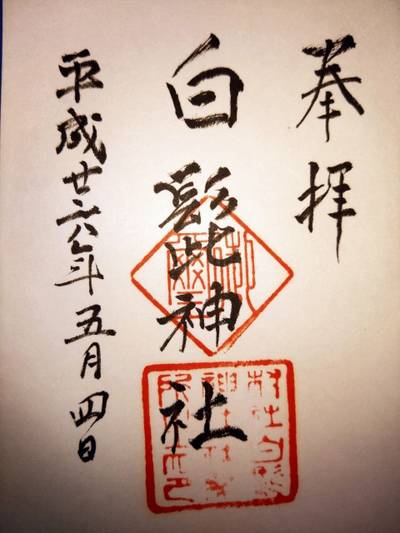 奉拝
白髭神社
平成廿六年五月四日